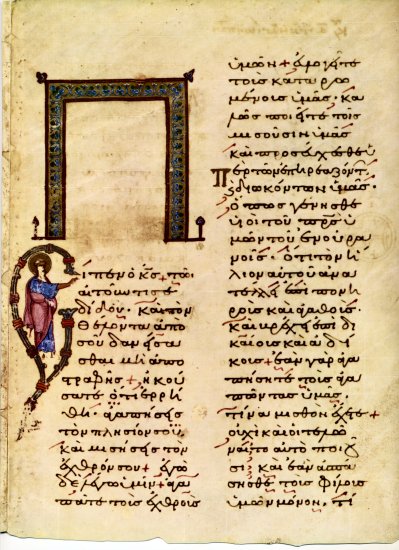 Εἶπεν ὁ κς· τῷ
αἰτοῦντί σε
δίδου. καὶ τὸν
θέλοντα ἀπὸ
σοῦ δανείσα
σθαι μὴ ἀπο
στραφῇς + ἠκού
σατε ὅτι ἐρρέ
θη. ἀγαπήσεις
τὸν πλησίον σου
καὶ μισήσεις τὸν
ἐχθρόν σου + ἐγὼ
δὲ λέγω ὑμῖν ἀγα
πᾶτε τοὺς ἐχθροὺς
ὑμῶν + εὐλογεῖτε
τοὺς καταρω
μένους ὑμᾶς. κα
λῶς ποιεῖτε τοῖς
μισοῦσιν ὑμᾶς
καὶ προσεύχεσθε ὑ
πὲρ τῶν ἐπηρεαζόντ
ϗ διωκόντων ὑμᾶς·
ὅπως γένησθε
υἱοὶ τοῦ πρς ὑ
μῶν τοῦ ἐν οὐρα
νοῖς. ὅτι τὸν ἥ
λιον αὐτοῦ ἀνα
τέλλει ἐπὶ πονη
ροὺς καὶ ἀγαθούς.
καὶ βρέχει ἐπὶ δι
καίους καὶ ἀδί
κους + ἐὰν γὰρ ἀγα
πήσητε τοὺς ἀγα
πῶντας ὑμᾶς
τίνα μισθὸν ἔχετε +
οὐχὶ καὶ οἱ τελῶ
ναι τὸ αὐτὸ ποιοῦ
σι; καὶ ἐὰν ἀσπά
σησθε τοὺς φίλους
ὑμῶν μόνον, τί